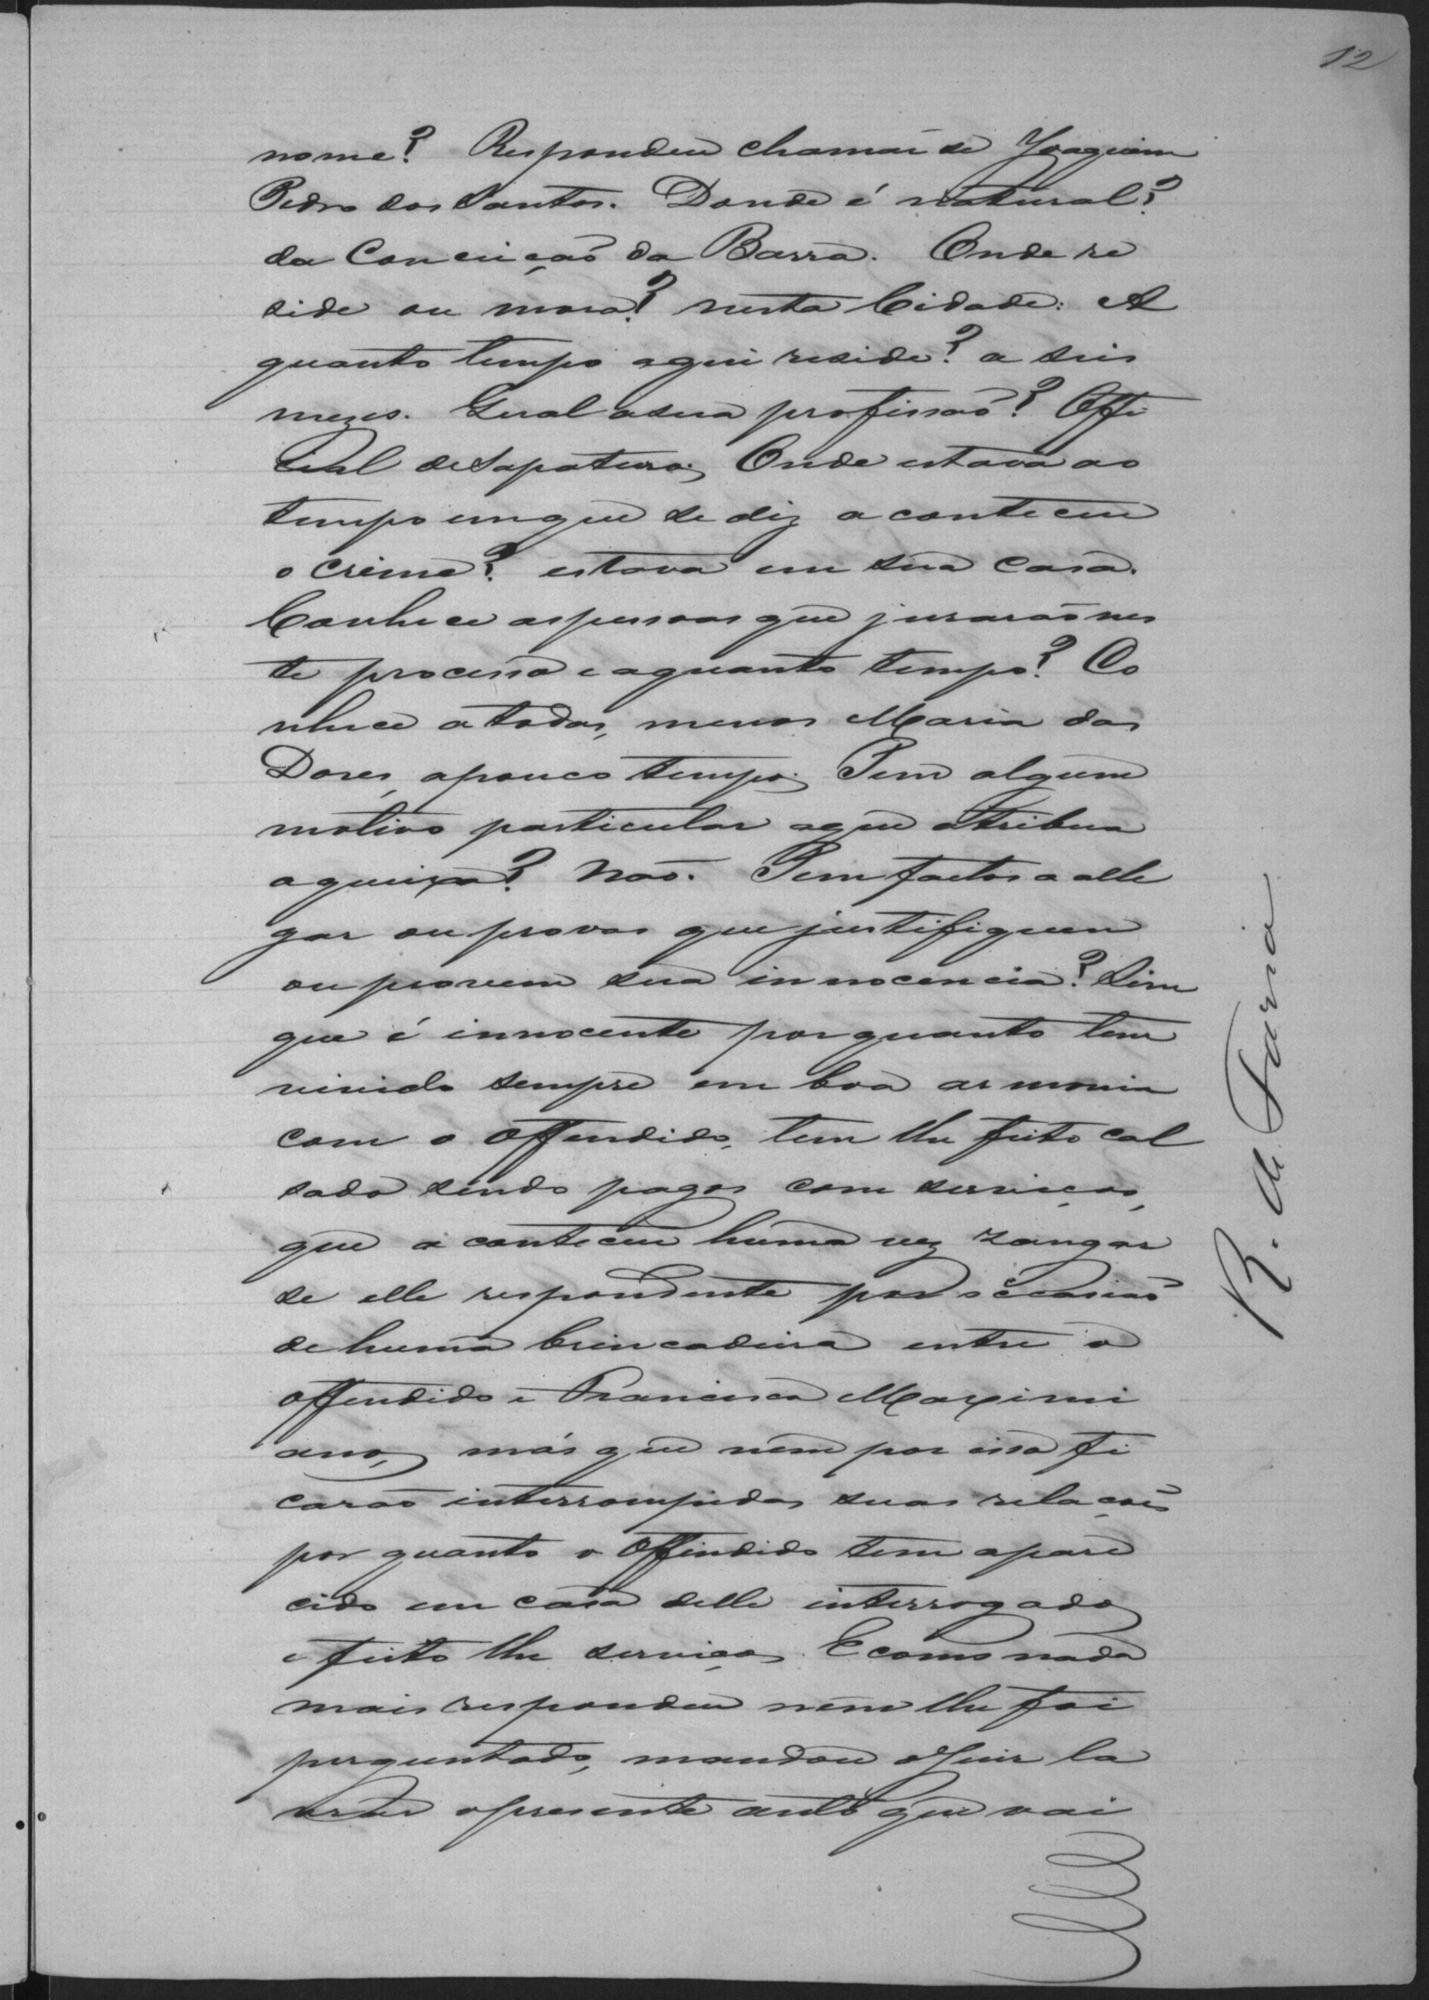 12
nome? Respondeu chamar se Joaquim
Pedro dos Santos. Donde é natural?
da Conceição da Barra. Onde re
side ou mora? nesta Cidade: A
quanto tempo aqui reside? a seis
mezes. Qual a sua profissão? Offi
cial de Sapateiro, Onde estava ao
tempo em que se diz aconteceu
o crime? estava em sua casa.
Conhece as pessoas que jurarão nes
te processo e a quanto tempo? Co
nhece a todas, menos Maria das
Dores, a pouco tempo, Tem algum
motivo particular a que atribua
a queixa? Não. Tem factos a alle
gar ou provas que justifiquem
ou provem sua innocencia? Sim
que é innocente por quanto tem
vivido sempre em boa armonia
com o offendido, tem lhe feito cal
sado sendo pagos com serviços,
que aconteceu huma vez zangar
se elle respondente por occasião
de huma brincadeira entre o
offendido e Francisco Maximi
ano, más que nem por isso fi
carão interrompidas suas relações
por quanto o offendido tem apare
cido em casa delle interrogado
e feito lhe serviços. E como nada
mais respondeu nem lhe foi
perguntado, mandou o Juiz la
vrar o presente auto que vai
R. de Faria